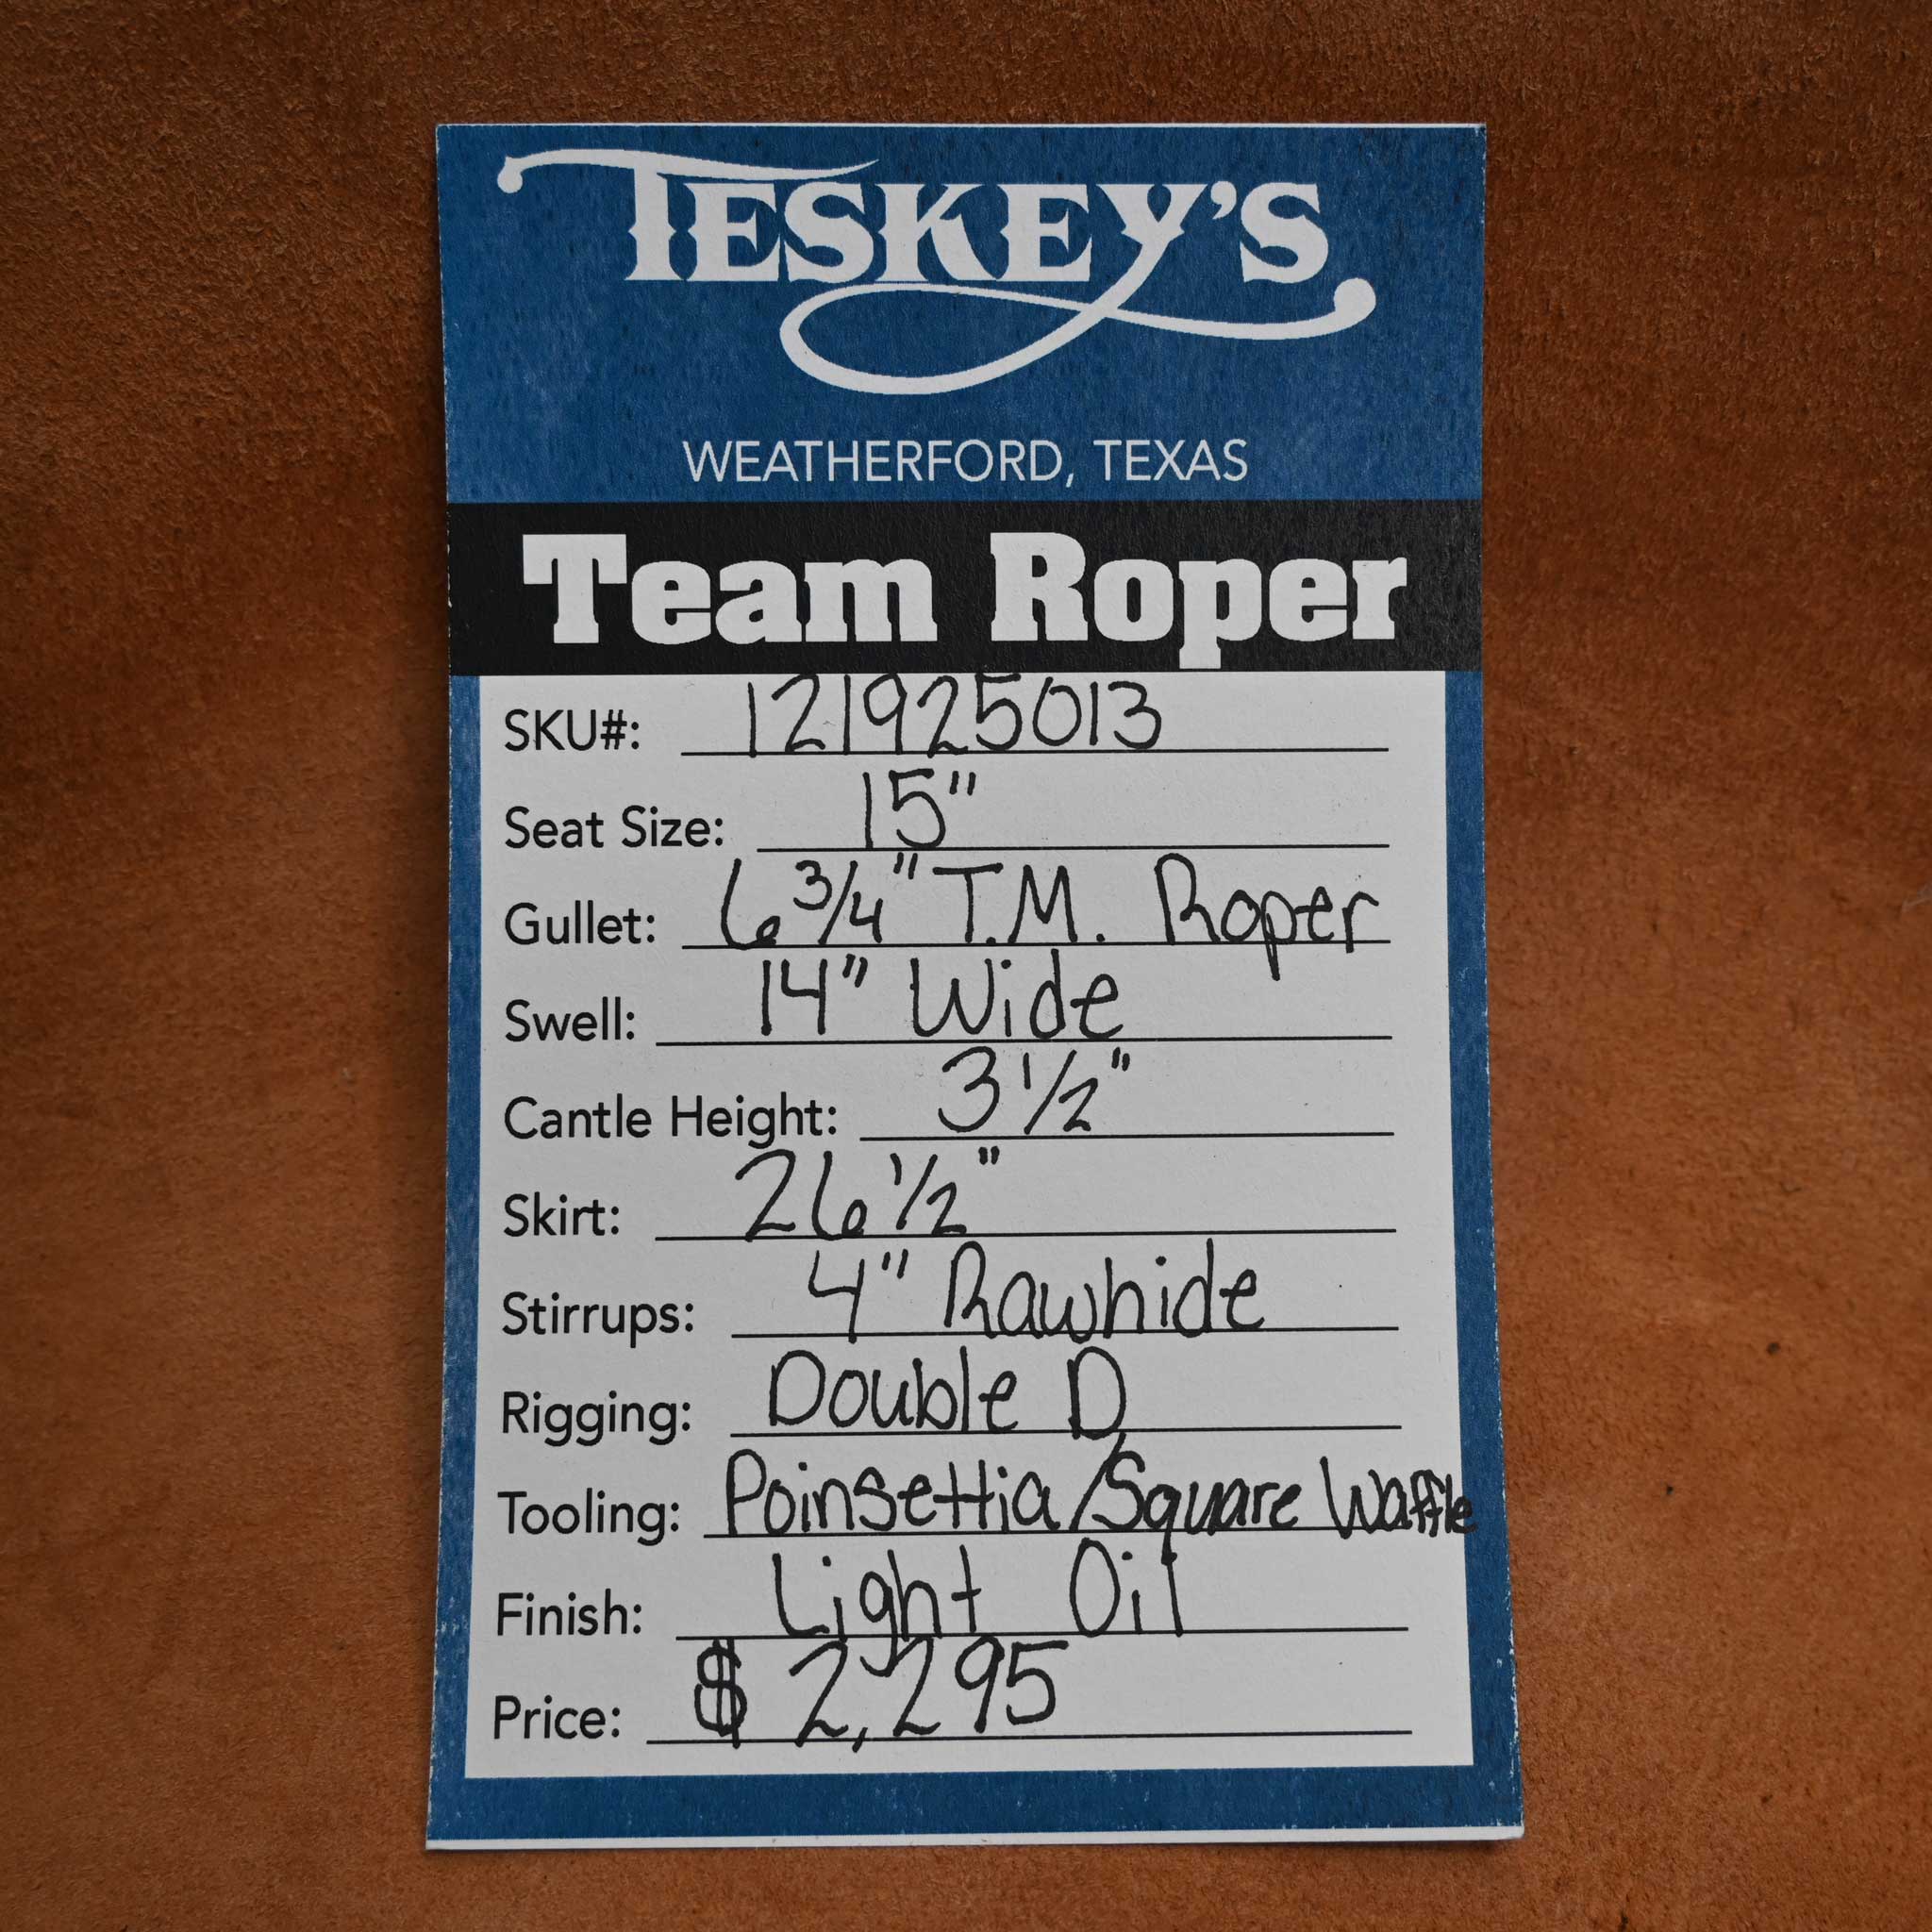 TESKEY'S
WEATHERFORD, TEXAS
Team Roper
SKU#: 121925013
Seat Size: 15"
Gullet: 6 3/4" T.M. Roper
Swell: 14" Wide
Cantle Height: 3 1/2"
Skirt: 26 1/2"
Stirrups: 4" Rawhide
Rigging: Double D
Tooling: Poinsettia/Square Waffle
Finish: Light Oil
Price: $ 2,295